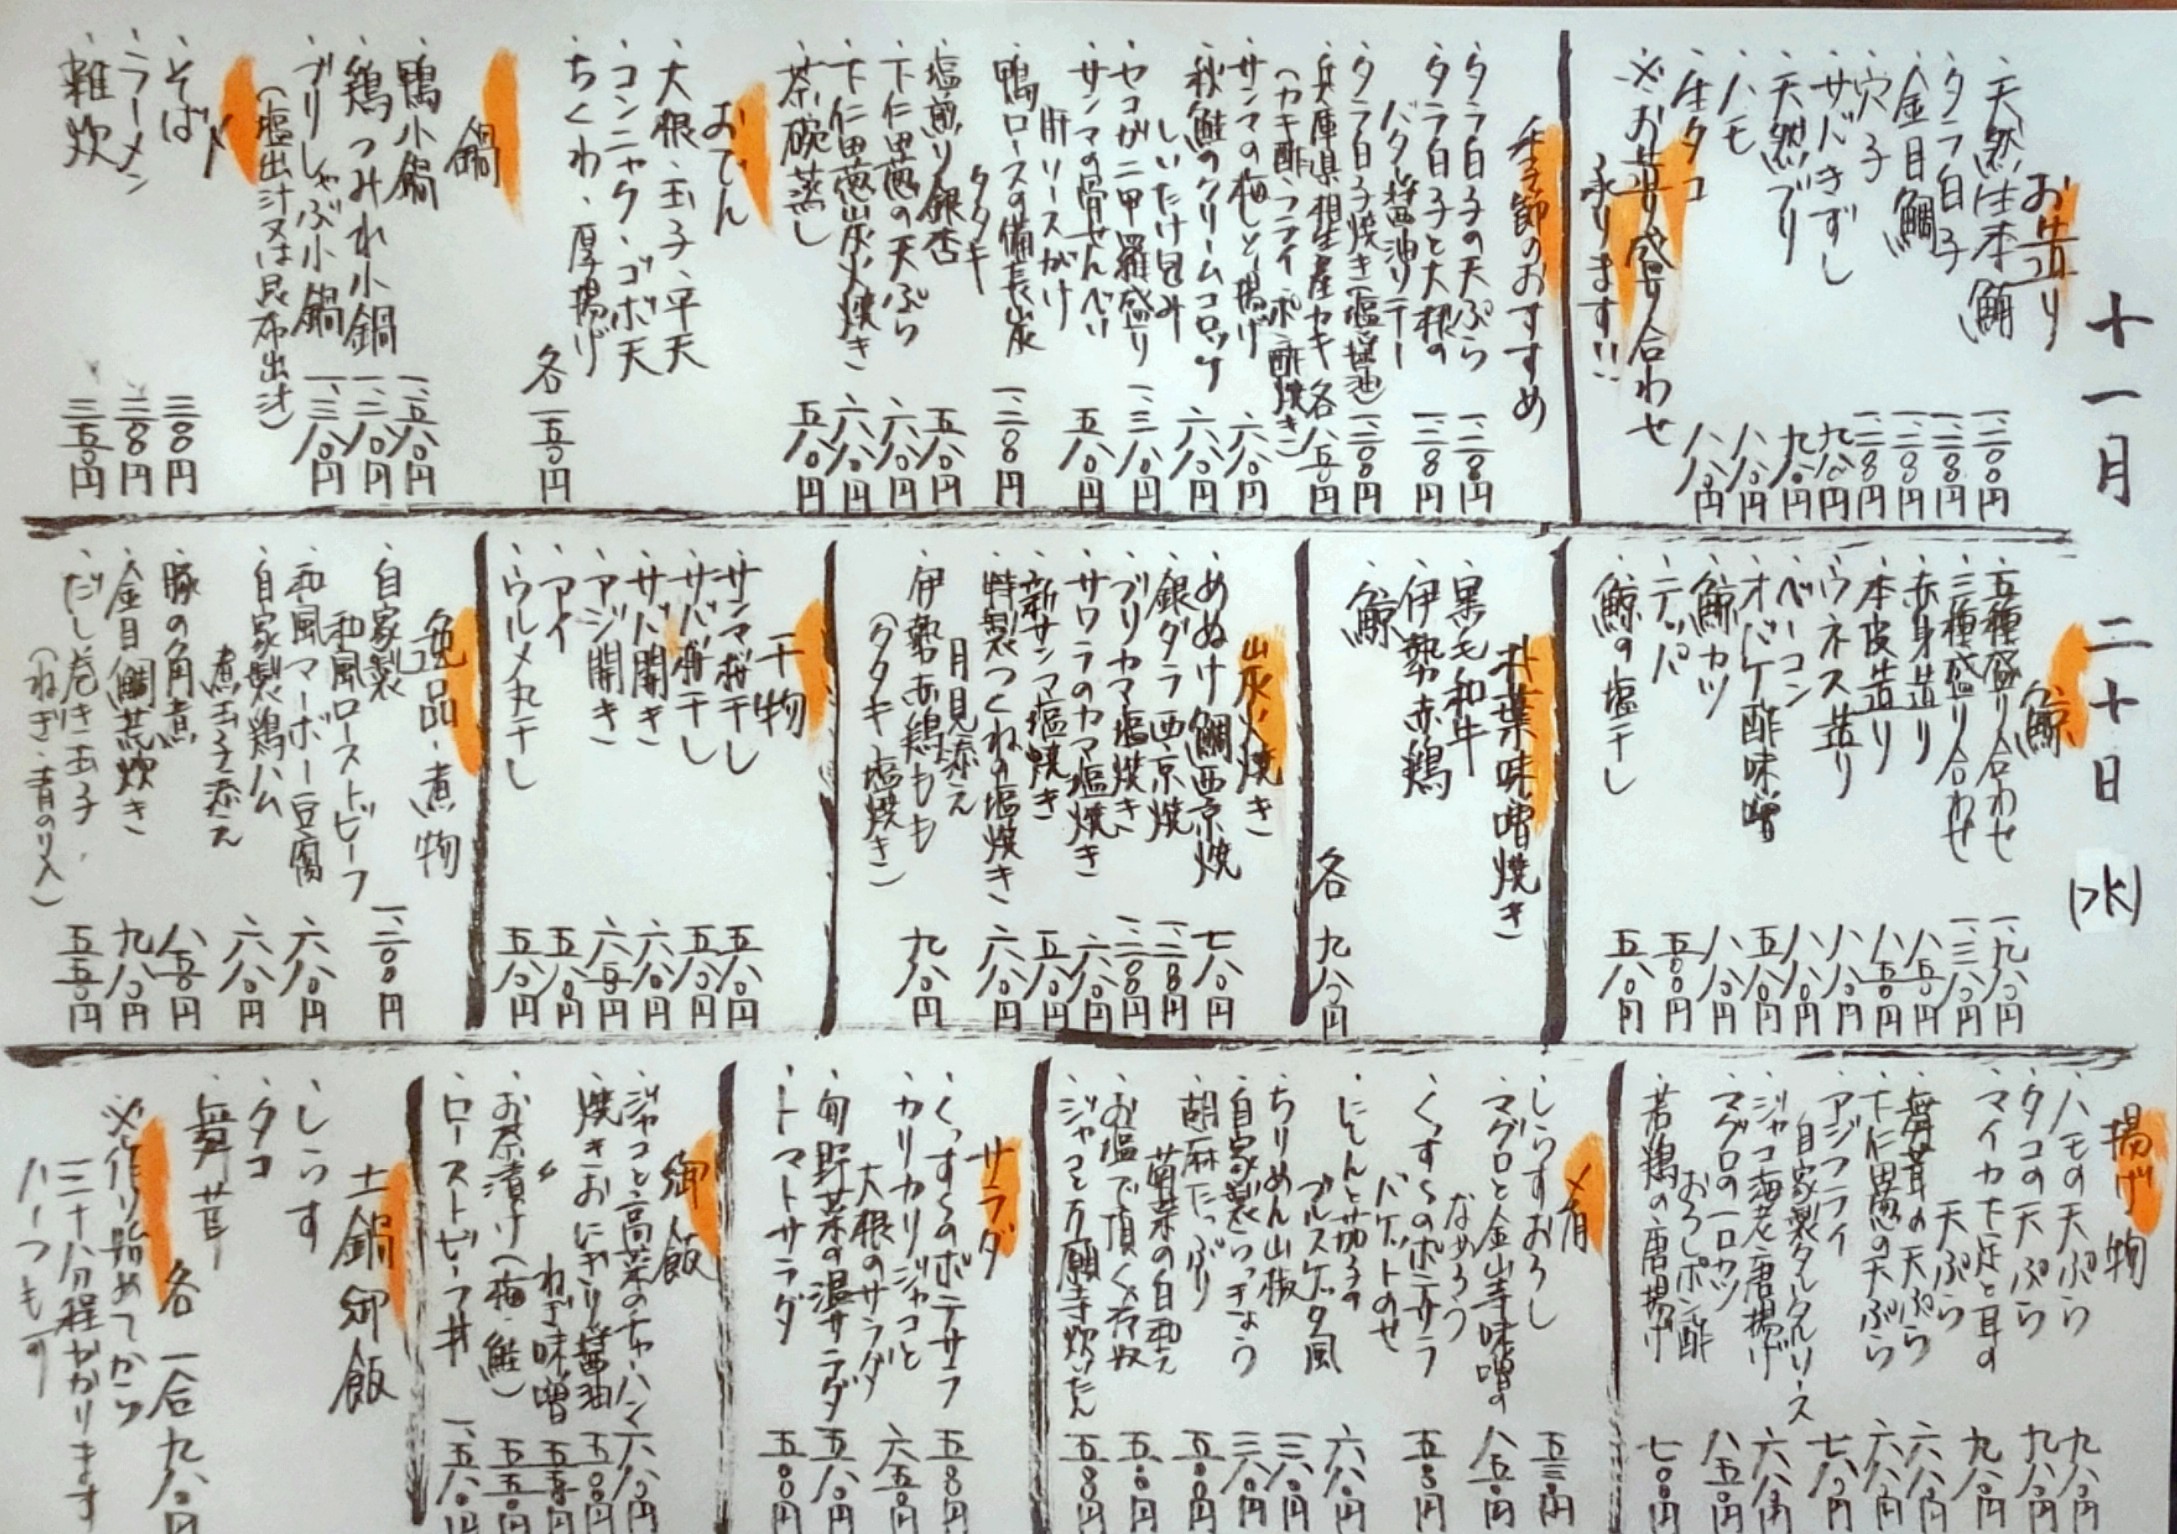 十一月二十日(水)
お造り
・天然生本鮪 一、二〇〇円
・タラ白子 一、二〇〇円
・金目鯛 一、二〇〇円
・穴子 一、二〇〇円
・サバきずし 九八〇円
・天然ブリ 九八〇円
・ハモ 八八〇円
・生タコ 八八〇円
※お造り盛り合わせ
承ります!!
季節のおすすめ
・タラ白子の天ぷら 一、二〇〇円
・タラ白子と大根の
バター醤油ソテー 一、二〇〇円
・タラ白子焼き(塩・醤油) 一、二〇〇円
・兵庫県相生産カキ 各八五〇円
(カキ酢・フライ・ポン酢焼き)
・サンマの梅しそ揚げ 六八〇円
・秋鮭のクリームコロッケ
しいたけ包み 六八〇円
・セコガニ甲羅盛り 一、三八〇円
・サンマの骨せんべい
肝ソースがけ 五八〇円
・鴨ロースの備長炭
タタキ 一、二〇〇円
・塩煎り銀杏 五八〇円
・下仁田葱の天ぷら 六八〇円
・下仁田葱炭火焼き 六八〇円
・茶碗蒸し 五八〇円
おでん
・大根・玉子・平天
・コンニャク・ゴボ天
・ちくわ・厚揚げ 各一五〇円
鍋
・鴨小鍋 一、五八〇円
・鶏つみれ小鍋 一、二八〇円
・ブリしゃぶ小鍋 一、三八〇円
(塩出汁又は昆布出汁)
〆
・そば 三〇〇円
・ラーメン 二〇〇円
・雑炊 三五〇円
鯨
・五種盛り合わせ 一、九八〇円
・三種盛り合わせ 一、三八〇円
・赤身造り 八五〇円
・本皮造り 八五〇円
・ウネス造り 八八〇円
・ベーコン 八八〇円
・オバケ酢味噌 五八〇円
・鯨カツ 八八〇円
・テッパ 五〇〇円
・鯨の塩干し 五八〇円
朴葉味噌焼き
・黒毛和牛
・伊勢赤鶏
・鯨 各九八〇円
炭火焼き
・めぬけ鯛西京焼 七八〇円
・銀ダラ西京焼 一、二〇〇円
・ブリカマ塩焼き 一、二〇〇円
・サワラのカマ塩焼き 六八〇円
・新サンマ塩焼き 五八〇円
・特製つくねの塩焼き
月見添え 六八〇円
・伊勢赤鶏もも
(タタキ・塩焼き) 九八〇円
干物
・サンマ桜干し 五八〇円
・サバ桜干し 五八〇円
・サバ開き 六八〇円
・アジ開き 六五〇円
・アイ 五八〇円
・ウルメ丸干し 五八〇円
逸品・煮物
・自家製
和風ローストビーフ 一、二〇〇円
・和風マーボー豆腐 六八〇円
・自家製鶏ハム
煮玉子添え 六八〇円
・豚の角煮 八五〇円
・金目鯛荒炊き 九八〇円
・だし巻き玉子
(ねぎ・青のり入) 五五〇円
揚げ物
・ハモの天ぷら 九八〇円
・タコの天ぷら 九八〇円
・マイカ下足と耳の
天ぷら 九八〇円
・舞茸の天ぷら 六八〇円
・下仁田葱の天ぷら 六八〇円
・アジフライ
自家製タルタルソース 七八〇円
・ジャコ海老唐揚げ 六八〇円
・マグロの一口カツ
おろしポン酢 八五〇円
・若鶏の唐揚げ 七〇〇円
〆肴
・しらすおろし 五三〇円
・マグロと金山寺味噌の
なめろう 八五〇円
・くっすぅのポテサラ
バケットのせ 五八〇円
・にしんと茄子の
ブルスケッタ風 六八〇円
・ちりめん山椒 三八〇円
・自家製らっきょう 三八〇円
・胡麻たっぷり
菊菜の白和え 五〇〇円
・お塩で頂く冷奴 五〇〇円
・ジャコと万願寺炊いたん 五〇〇円
サラダ
・くっすぅのポテサラ 五〇〇円
・カリカリジャコと
大根のサラダ 六五〇円
・旬野菜の温サラダ 五八〇円
・トマトサラダ 五〇〇円
御飯
・ジャコと高菜のチャーハン 六八〇円
・焼きおにぎり醤油 五〇〇円
〃 ねぎ味噌 五五〇円
・お茶漬け(梅・鮭) 五五〇円
・ローストビーフ丼 一、五八〇円
土鍋御飯
・しらす
・タコ
・舞茸 各一合九八〇円
※作り始めてから
三十分程かかります
ハーフもす